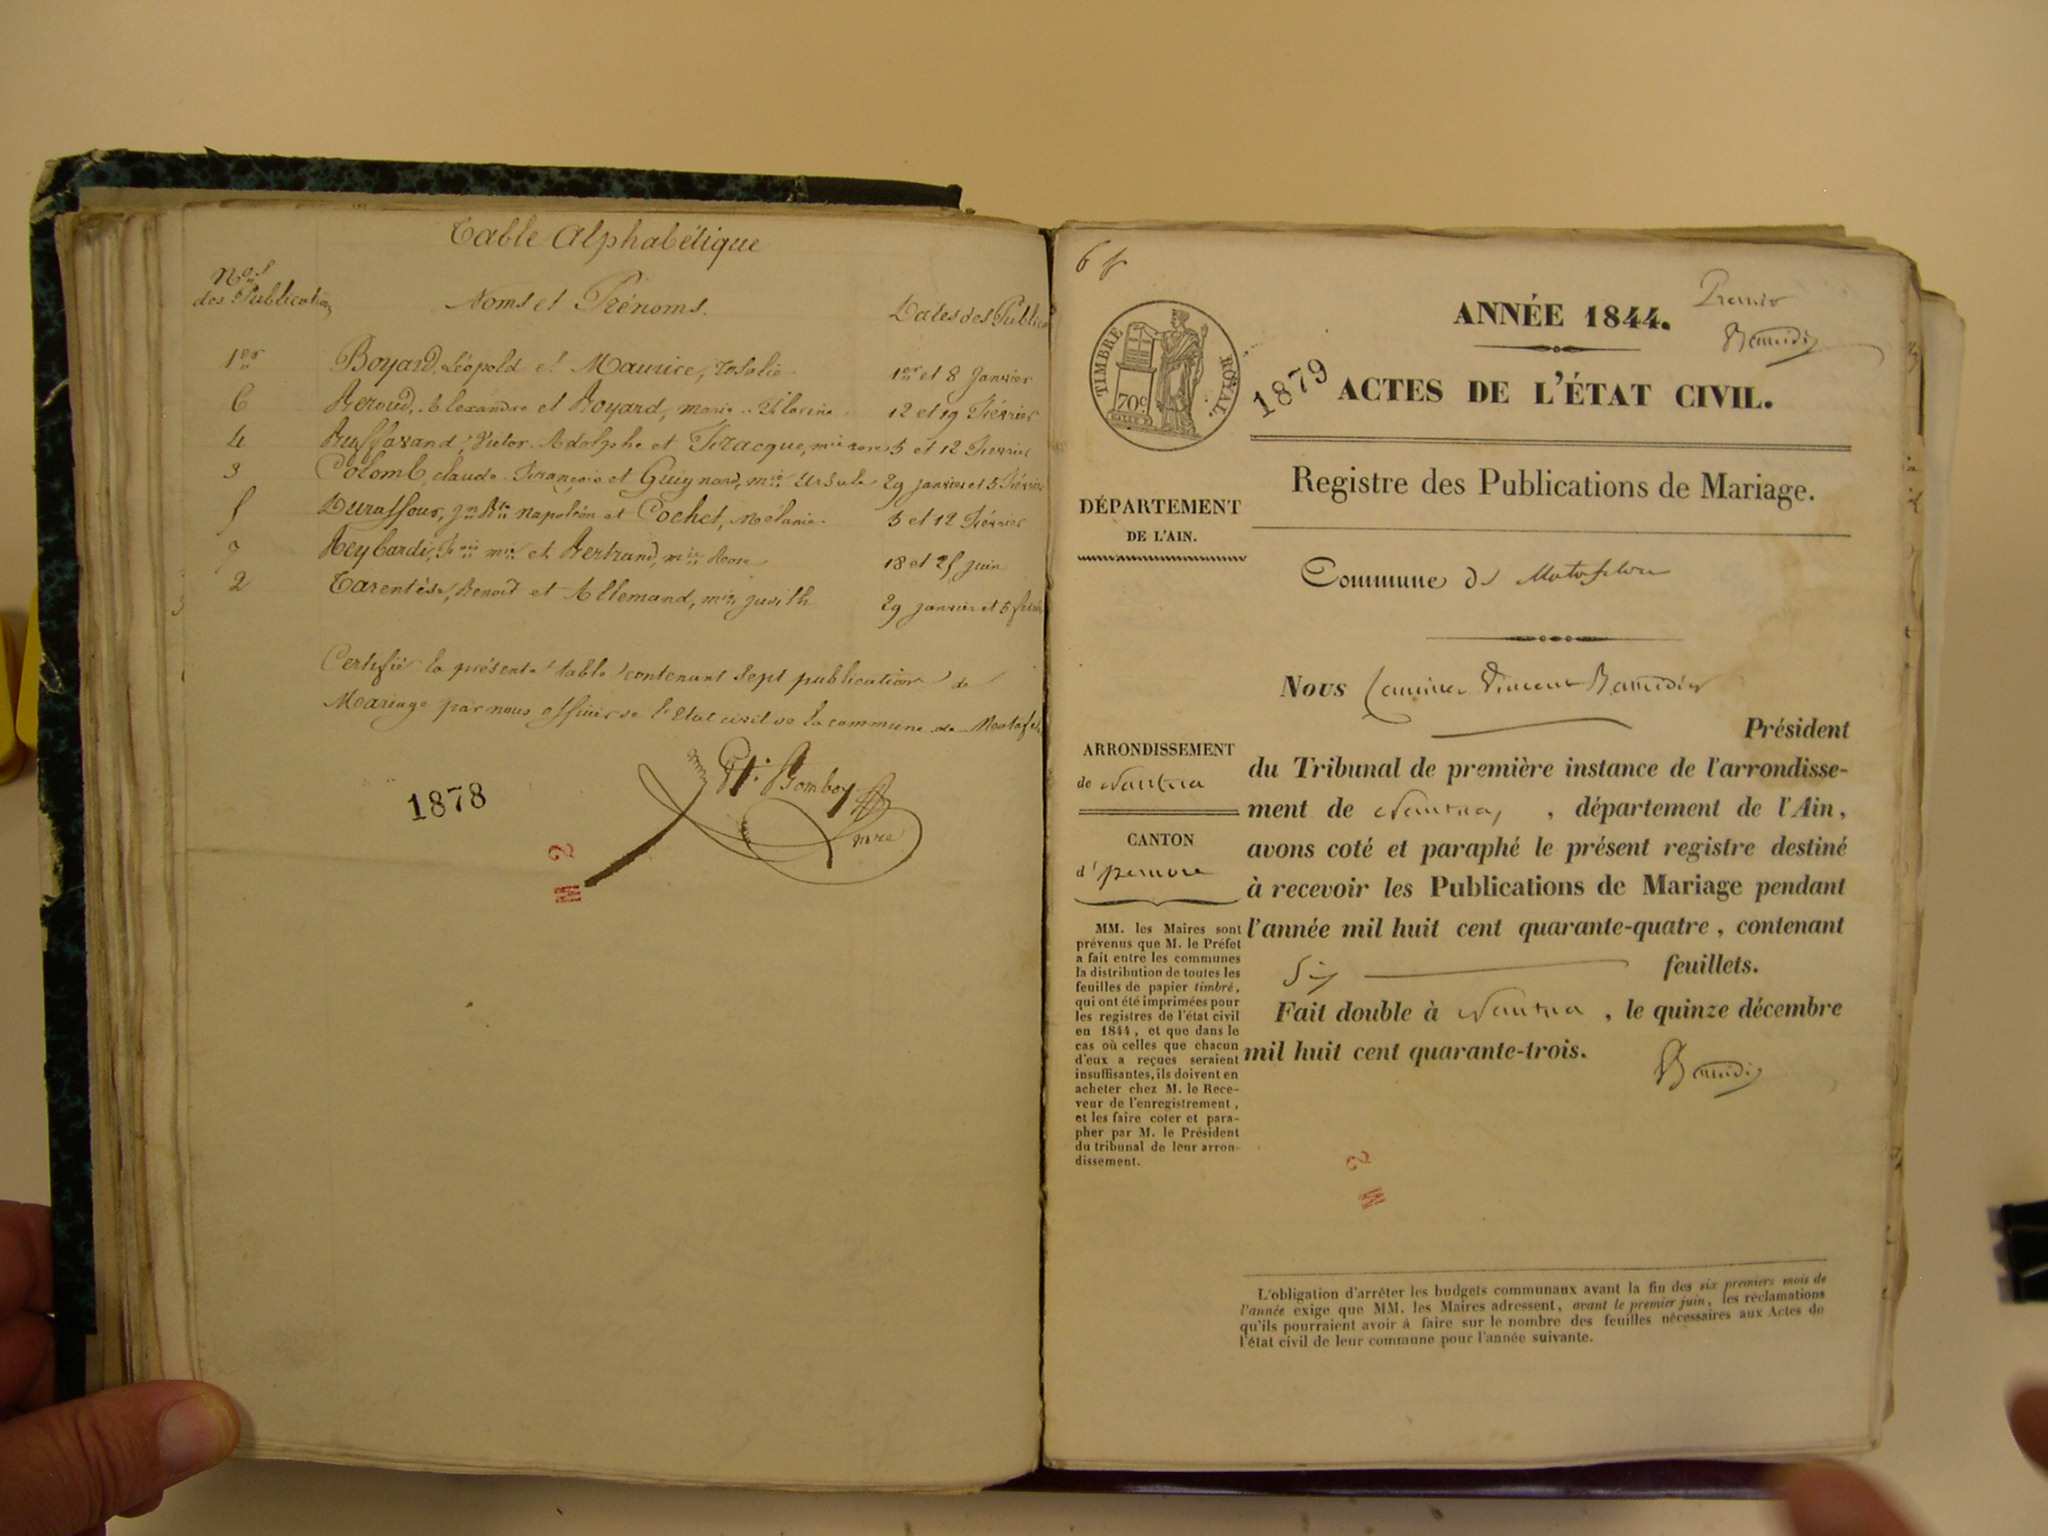 Table Alphabétique
Nos
des Publications
Noms et Prénoms.
Dates des Public
1er Boyard, Léopold et Maurice, rosalie 1er et 8 Janvier
6 Beroud, Alexandre et Boyard, marie 12 et 19 Février
4 Buffavand, Victor Adolphe et Fracque, 5 et 12 Février
3 Colomb, claude François et Guignard, mie Ursule 29 janvier et 5 Février
5 Duraffour, jn Bte napoléon et Cochet, mélanie 5 et 12 Février
7 et Bertrand, mie 18 et 25 juin
2 Tarentèse, Benoit et Allemand, mie judith 29 janvier et 5 févri
Certifié la présente table contenant sept publications de
Mariage par nous officier de l'état civil de la commune de Matafel
Bomboy
mre
1878
M 2
6 f
ANNÉE 1844.
Premier
TIMBRE ROYAL.
70c
1879
ACTES DE L'ÉTAT CIVIL.
Registre des Publications de Mariage.
DÉPARTEMENT
DE L'AIN.
Commune de Matafelon
Nous Vincent
Président
ARRONDISSEMENT
de Nantua
CANTON
d'
du Tribunal de première instance de l'arrondisse-
ment de Nantua, , département de l'Ain,
avons coté et paraphé le présent registre destiné
à recevoir les Publications de Mariage pendant
l'année mil huit cent quarante-quatre, contenant
Six feuillets.
Fait double à Nantua, le quinze décembre
mil huit cent quarante-trois.
MM. les Maires sont
prévenus que M. le Préfet
a fait entre les communes
la distribution de toutes les
feuilles de papier timbré,
qui ont été imprimées pour
les registres de l'état civil
en 1844, et que dans le
cas où celles que chacun
d'eux a reçues seraient
insuffisantes, ils doivent en
acheter chez M. le Rece-
veur de l'enregistrement,
et les faire coter et para-
pher par M. le Président
du tribunal de leur arron-
dissement.
2 M
L'obligation d'arrêter les budgets communaux avant la fin des six premiers mois de
l'année exige que MM. les Maires adressent, avant le premier juin, les réclamations
qu'ils pourraient avoir à faire sur le nombre des feuilles nécessaires aux Actes de
l'état civil de leur commune pour l'année suivante.